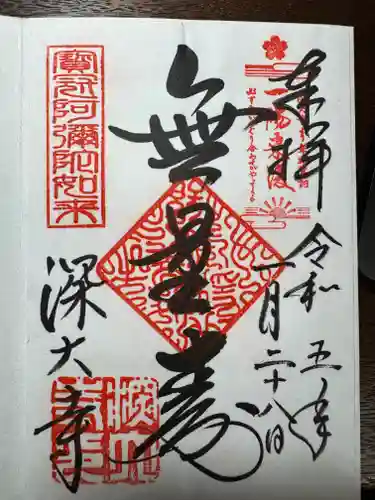 奉拝
令和五年
一月二十八日
一陽来復
無量寿
寶冠阿彌陀如来
深大寺